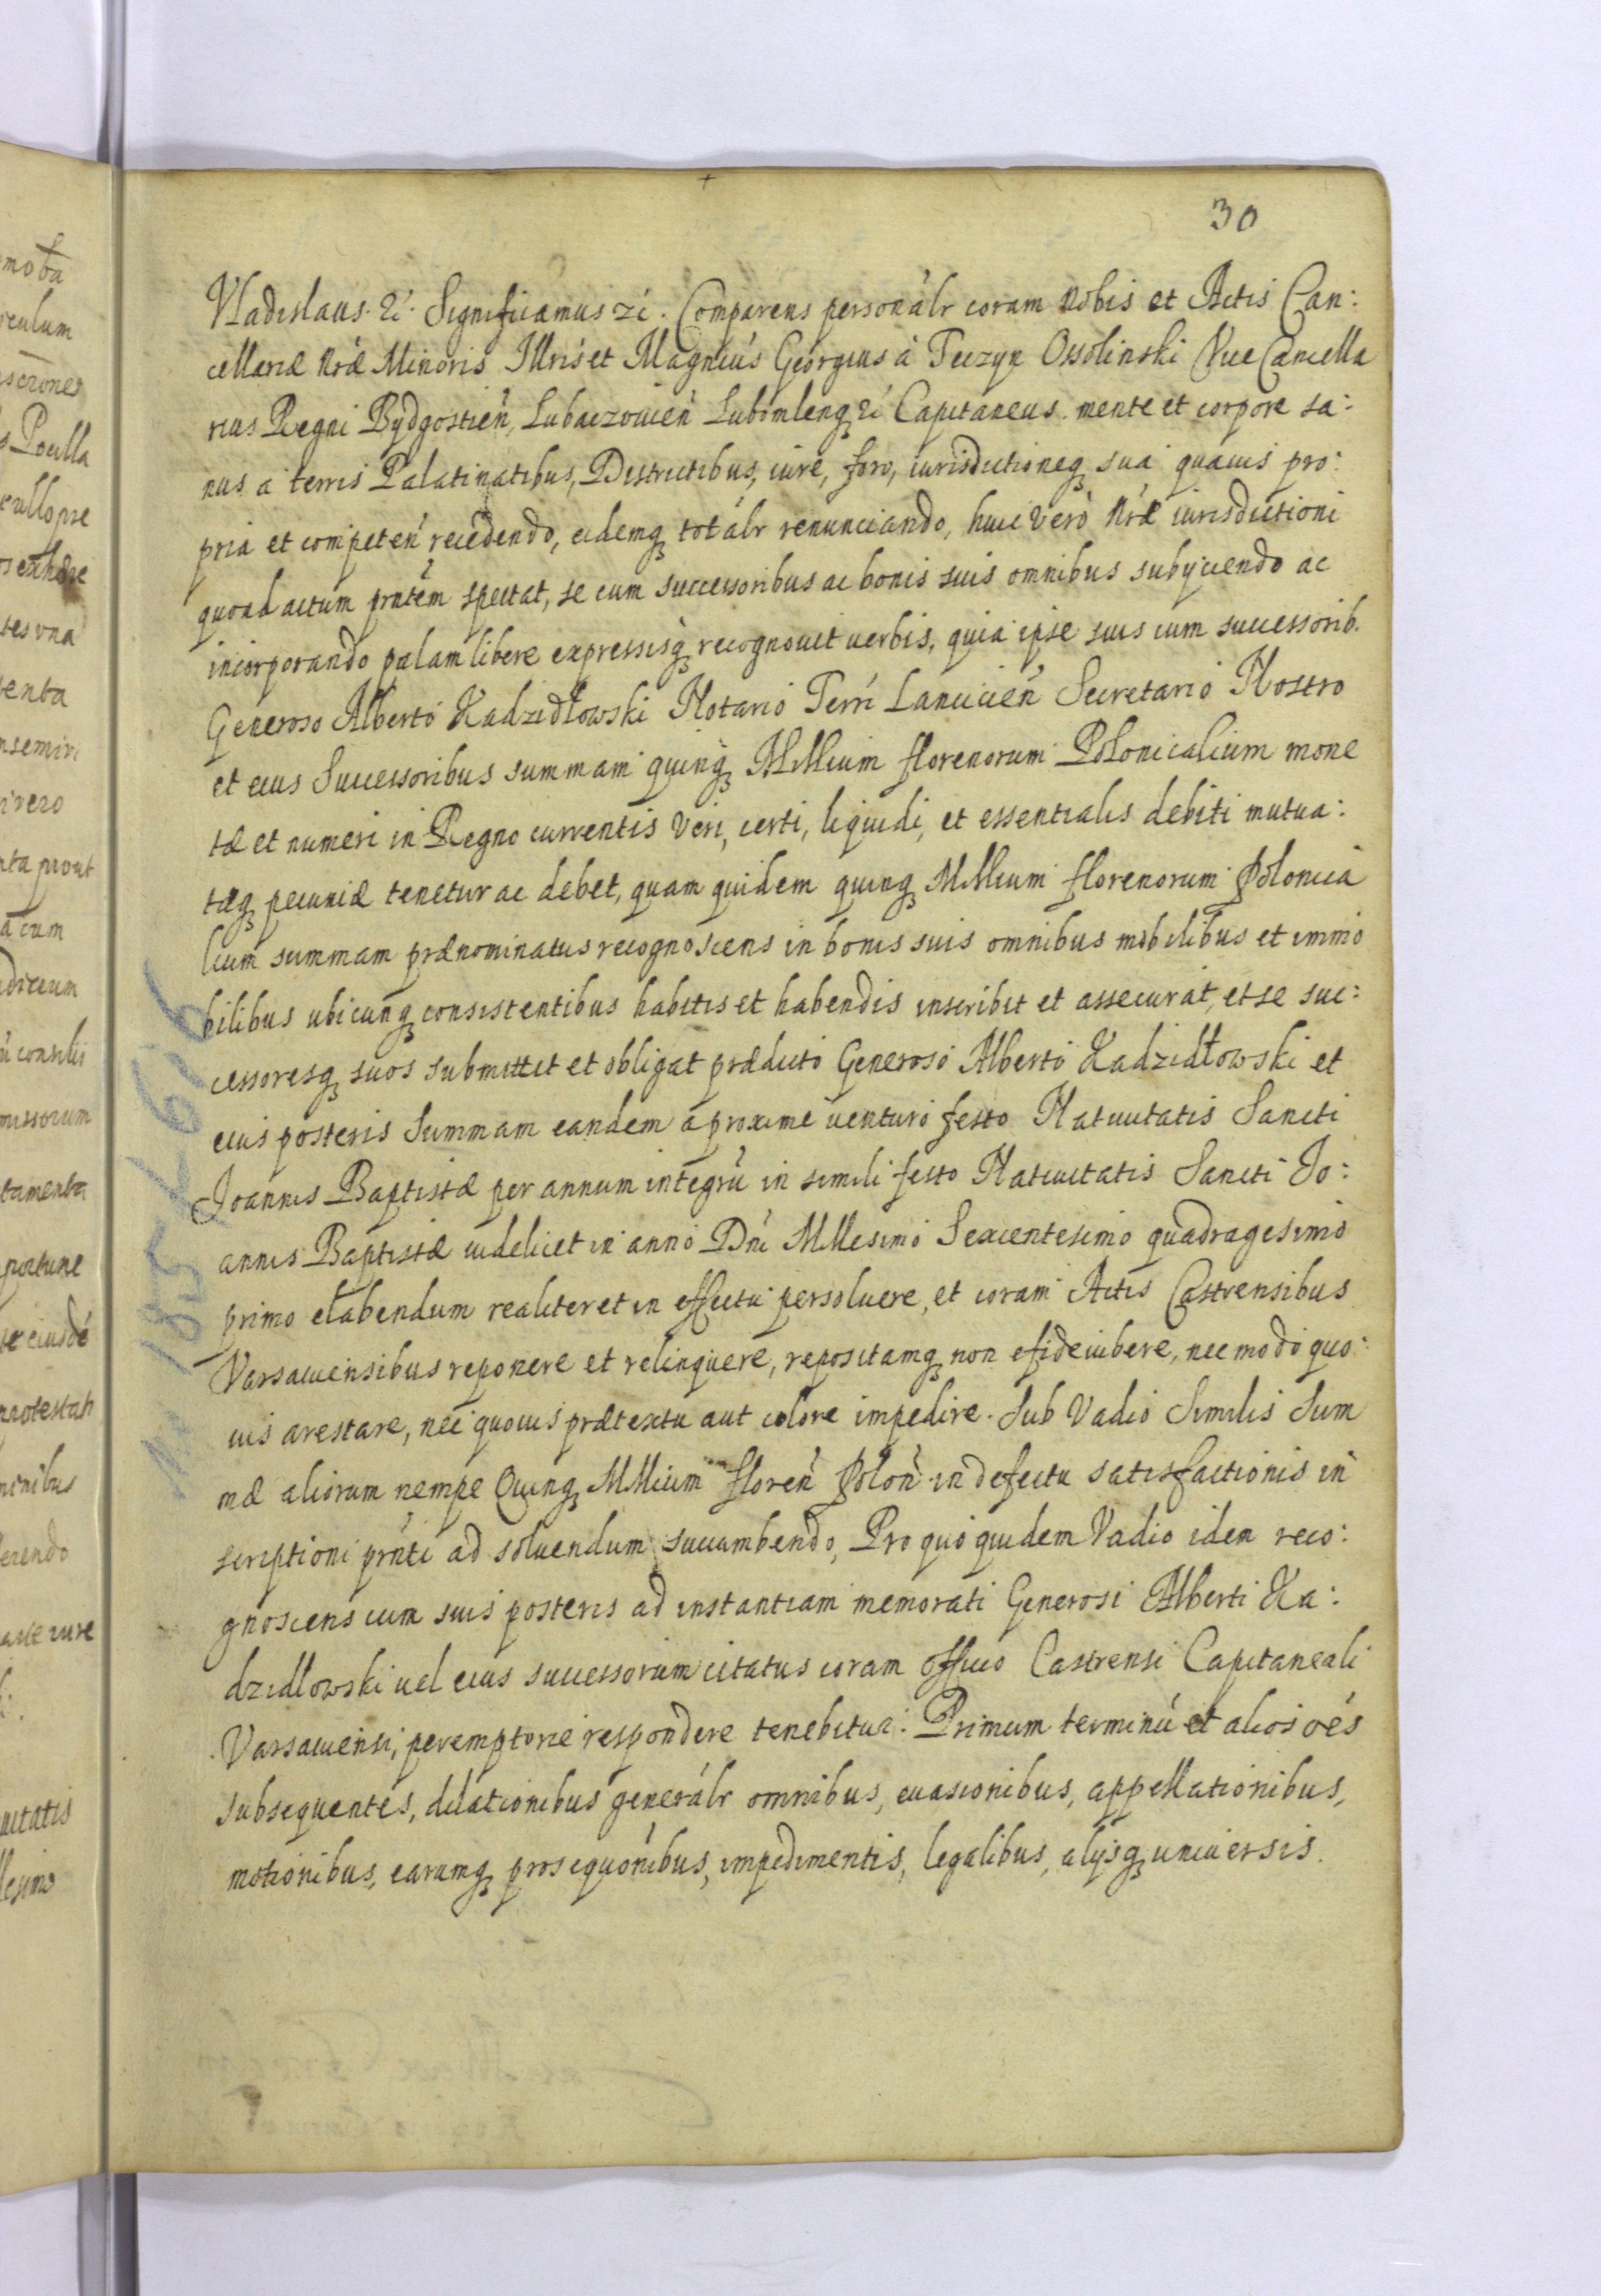 30
Vladislaus. &c. Significamus &c. Comparens personálr coram Nobis et Actis Can:
cellariæ Nrǽ Minoris Illris et Magnicus Georgius à Teczyn Ossolinski Vice Cancella
rius Regni Bydgostien̄, Lubaczovien̄ Lubomlenq &c Capitaneus. mente et corpore sa:
nus a terris Palatinatibus, Districtibus, iure, foro, iurisdictioneq sua quavis pro:
pria et competeń recedendo, eidemq totálr renunciando, huic verò Nrǽ iurisdictioni
quoad actum prńtem spectat, se cum successoribus ac bonis suis omnibus subijciendo ac
incorporando palam libere expressisq recognovit verbis, quia ipse suis cum successorib.
Generoso Alberto Kadzidłowski Notario Terrí Lanciciеń Secretario Nostro
et eius Successoribus summam quinq Millium florenorum Polonicalium mone
tæ et numeri in Regno currentis veri, certi, liquidi, et essentialis debiti mutua:
tæq pecuniæ tenetur ac debet, quam quidem quinq Millium florenorum Polonica
lium summam prænominatus recognoscens in bonis suis omnibus mobilibus et immo
bilibus ubicunq consistentibus habitis et habendis inscribit et assecurat, et se suc:
cessoresq suos submittit et obligat prædicto Generoso Alberto Kadzidłowski et
eius posteris Summam eandem a proxime venturo festo Nativitatis Sancti
Joannis Baptistæ per annum integrū in simili festo Nativitatis Sancti Jo:
annis Baptistæ videlicet in anno Dńi Millesimo Sexcentesimo quadragesimo
primo elabendum realiter et in effectu persolvere, et coram Actis Castrensibus
Varsaviensibus reponere et relinquere, repositamq non efideiubere, nec modo quo:
vis arestare, nec quovis prætextu aut colore impedire. Sub Vadio Similis Sum
mæ aliorum nempe Quinq Millium floreń Poloń in defectu satisfactionis in
scriptioni prńti ad solvendum succumbendo, Pro quo quidem Vadio idem reco:
gnoscens cum suis posteris ad instantiam memorati Generosi Alberti Ka:
dzidlowski vel eius successorum citatus coram officio Castrensi Capitaneali
Varsaviensi, peremptorie respondere tenebitur. Primum terminū et alios oēs
subsequentes, dilationibus generálr omnibus, evasionibus, appellationibus,
motionibus, earumq prosequónibus, impedimentis, legalibus, alijsq universis.